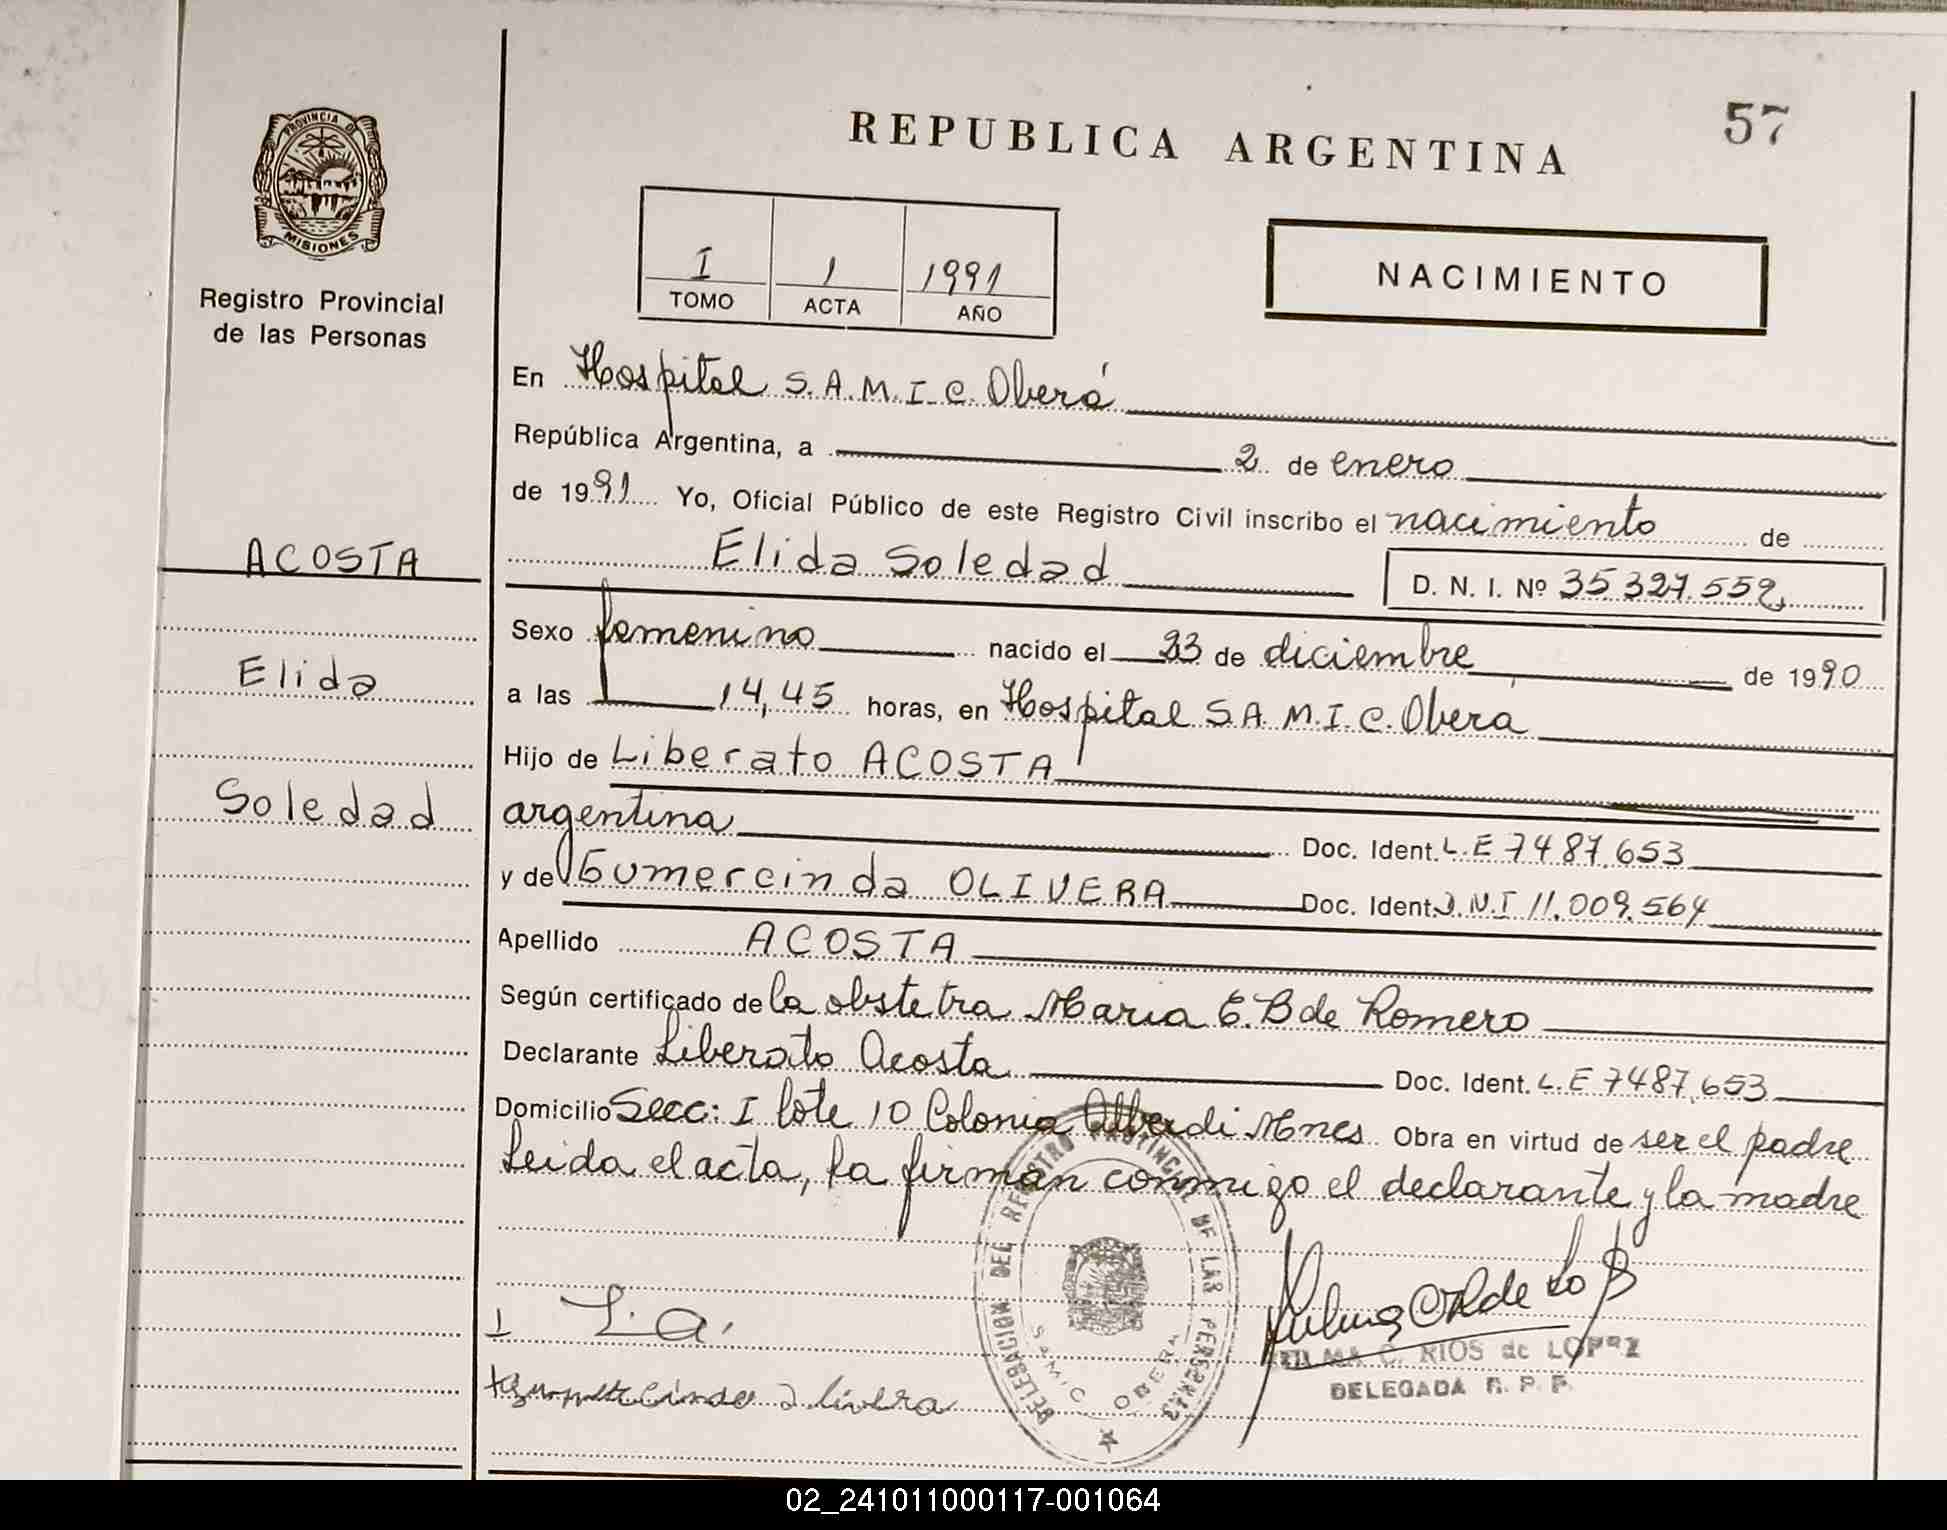 57
REPUBLICA ARGENTINA
PROVINCIA DE
MISIONES
Registro Provincial
de las Personas
I 1 1991
TOMO ACTA AÑO
NACIMIENTO
En Hospital S.A.M.I.C. Oberá
República Argentina, a 2 de enero
de 1991 Yo, Oficial Público de este Registro Civil inscribo el nacimiento de
ACOSTA
Elida Soledad D. N. I. Nº 35.327.552
Sexo femenino nacido el 23 de diciembre de 1990
Elida
a las 14,45 horas, en Hospital S.A.M.I.C. Obera
Hijo de Liberato ACOSTA
Soledad
argentina Doc. Ident. L.E 7487.653
y de Gumercinda OLIVERA Doc. Ident. D.N.I 11.009.564
Apellido ACOSTA
Según certificado de la obstetra Maria E. B de Romero
Declarante Liberato Acosta Doc. Ident. L.E 7487.653
Domicilio Secc: I lote 10 Colonia Alberdi Mnes Obra en virtud de ser el padre
Leida el acta, la firman conmigo el declarante y la madre
DELEGACION DEL REGISTRO PROVINCIAL DE LAS PERSONAS
SAMIC OBERA
L. a.
C. RIOS de LOPEZ
DELEGADA R. P. P.
olivera
02_241011000117-001064